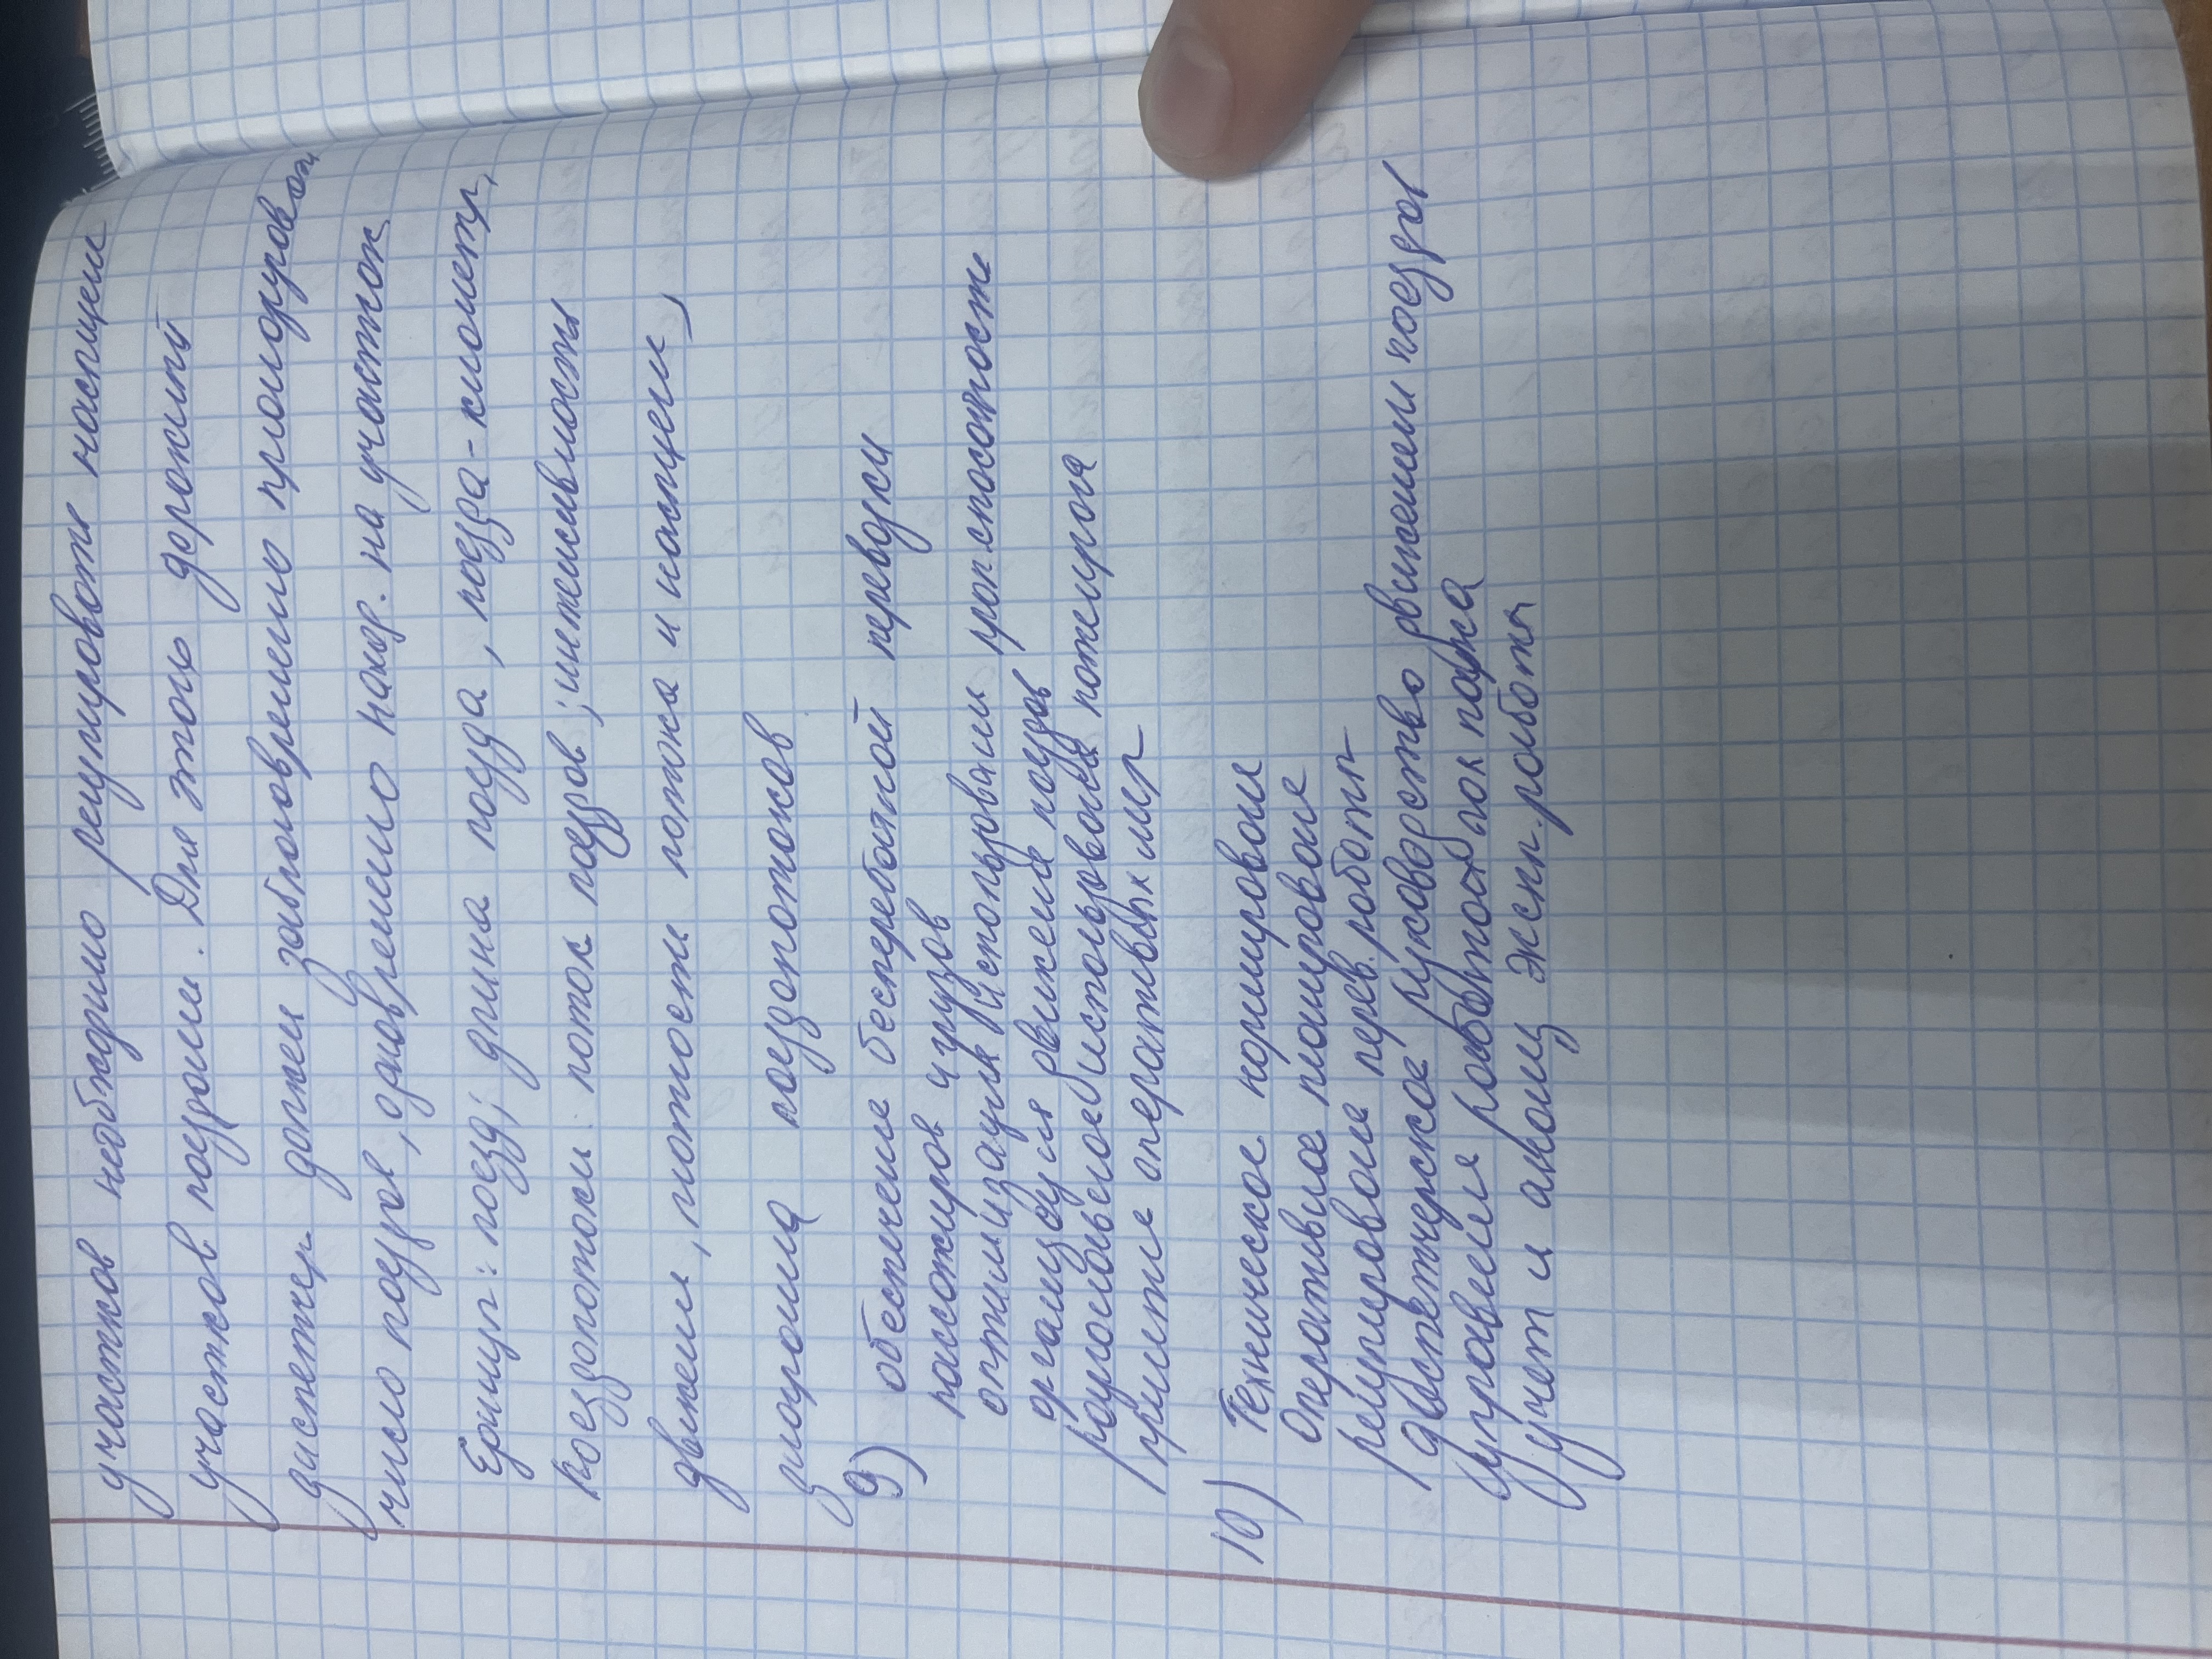 участков необходимо регулировать насыщен
участков поездами. Для этого держаний
диспетчер должен заблаговременно планирова
число поездов, одновременно наход. на участках
Единиц.: поезд; длина поезда, поезда-километр,
поездопотоки: поток поездов; интенсивность
движен, плотности потока и насыщен,
диаграмма поездопотоков
9) обеспечение бесперебойной перевозки
пассажиров и грузов
оптимизация использовани проп.способности
организация движения поездов
рациональное использование локомпрогя
принятие оперативных мер
10) Техническое нормирование
Оперативное планирование
регулирование перев. работы
диспетчерское руководство движением поездов
управления работой лок парка
учет и анализ экспл.работы